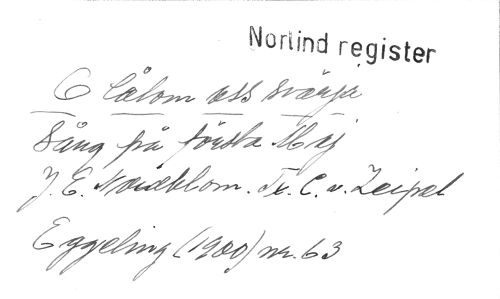 Norlind register
O låtom oss svärja
Sång på första Maj
J. E. Nordblom. Tx. C. v. Zeipel
Eggeling (1900) nr. 63